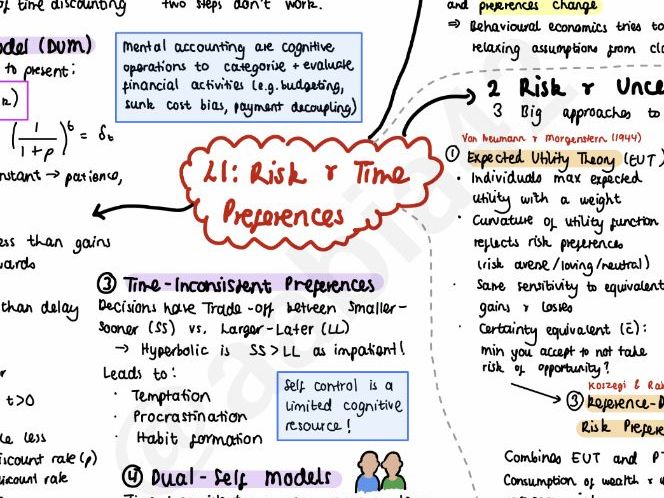 of time discounting
two steps don't work.
and preferences change
⇒ Behavioural economics tries to
relaxing assumptions from cla
odel (DUM)
to present:
Mental accounting are cognitive
operations to categorise + evaluate
financial activities (e.g. budgeting,
sunk cost bias, payment decoupling)
(1/1+ρ)^t = δt
nstant → patience,
L1: Risk & Time
Preferences
ess than gains
wards
than delay
t>0
ke less
iscount rate (ρ)
iscount rate
③ Time-Inconsistent Preferences
Decisions have Trade-off between Smaller-
Sooner (SS) vs. Larger-Later (LL)
→ Hyperbolic is SS>LL as impatient!
Leads to:
· Temptation
· Procrastination
· Habit formation
Self control is a
limited cognitive
resource!
④ Dual-Self models
2 Risk & Unce
3 Big approaches to
Von Neumann & Morgenstern (1944)
① Expected Utility Theory (EUT)
• Individuals max expected
utility with a weight
• Curvature of utility function
reflects risk preferences
(risk averse/loving/neutral)
• Same sensitivity to equivalent
gains & losses
• Certainty equivalent (c̄):
min you accept to not take
risk of opportunity?
Koszegi & Rab
③ Reference-D
Risk Prefere
Combines EUT and PT
Consumption of wealth &